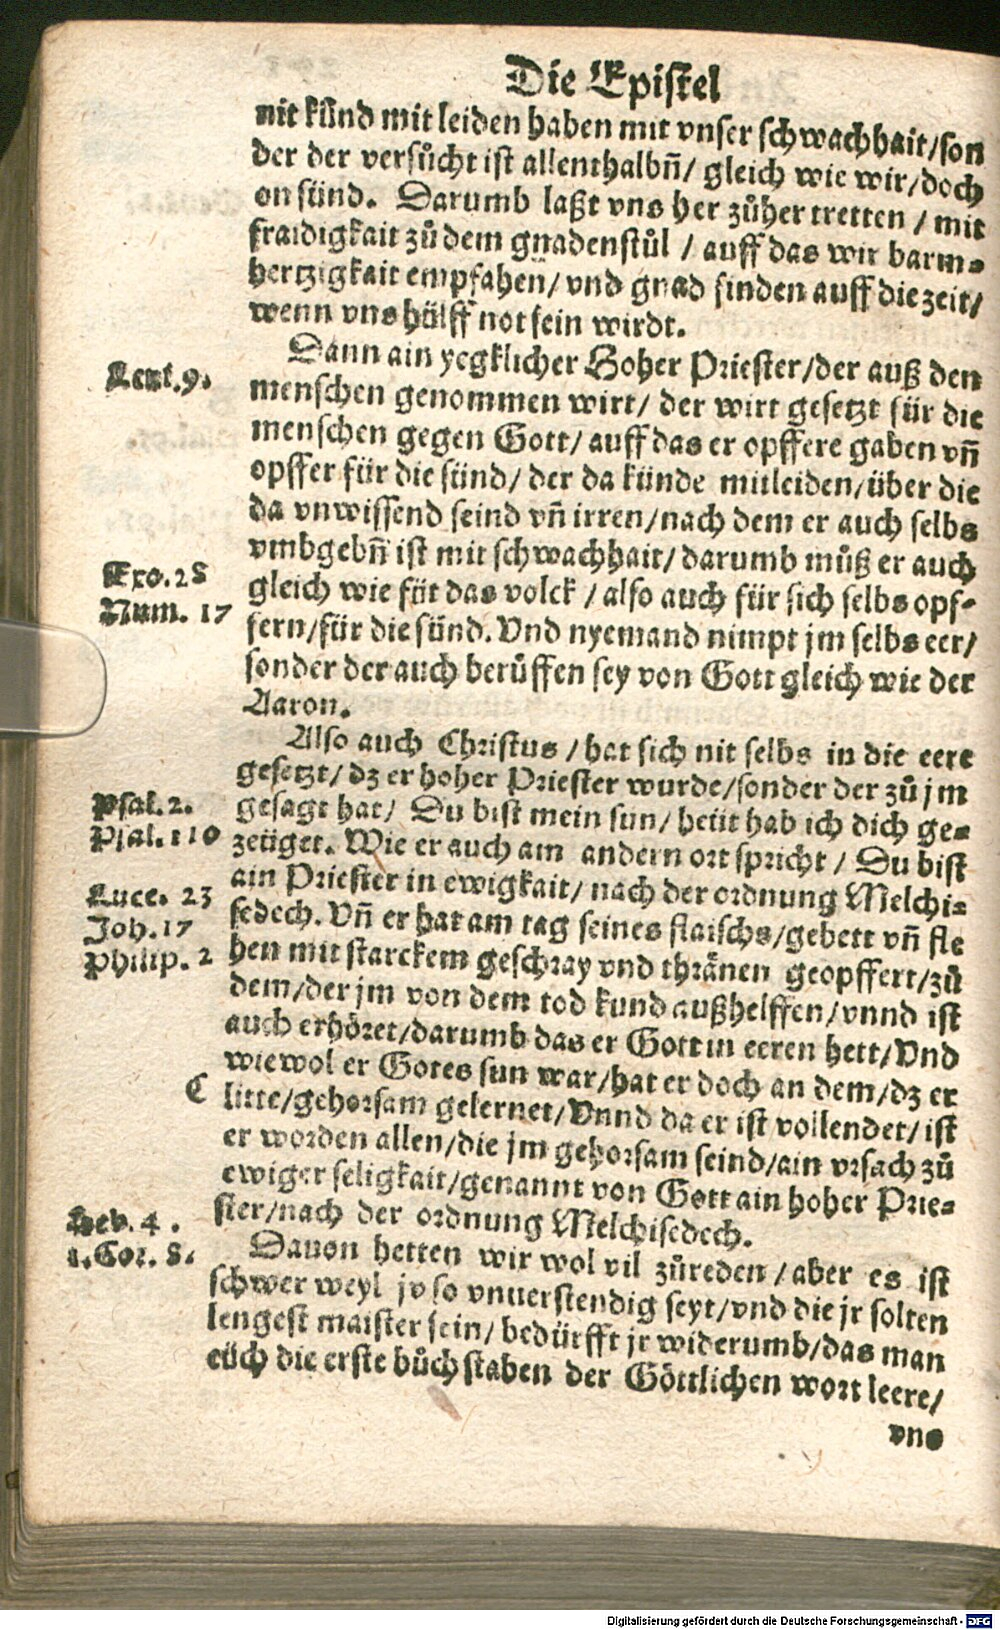 Die Epistel
nit künd mit leiden haben mit vnser schwachhait/son
der der versůcht ist allenthalbñ/ gleich wie wir/doch
on sünd. Darumb laßt vns her zůher tretten / mit
fraidigkait zů dem gnadenstůl / auff das wir barm⸗
hertzigkait empfahen/ vnd gnad finden auff die zeit/
wenn vns hülff not sein wirdt.
Dann ain yegklicher Hoher Priester/der auß den
Leui. 9.
menschen genommen wirt/ der wirt gesetzt für die
menschen gegen Gott/ auff das er opffere gaben vñ
opffer für die sünd/ der da künde mitleiden/über die
da vnwissend seind vñ irren/nach dem er auch selbs
vmbgebñ ist mit schwachhait/darumb můß er auch
Exo. 28
gleich wie für das volck / also auch für sich selbs opf⸗
Num. 17
fern/für die sünd. Vnd nyemand nimpt jm selbs eer/
sonder der auch berůffen sey von Gott gleich wie der
Aaron.
Also auch Christus /hat sich nit selbs in die eere
gesetzt/ dz er hoher Priester wurde/sonder der zů jm
Psal. 2.
gesagt hat/ Du bist mein sun/ heüt hab ich dich ge⸗
Psal. 110
zeüget. Wie er auch am andern ort spricht / Du bist
ain Priester in ewigkait/ nach der ordnung Melchi⸗
Luce. 23
sedech. Vñ er hat am tag seines flaischs/gebett vñ fle
Joh. 17
hen mit starckem geschray vnd thränen geopffert/zů
Philip. 2
dem/der jm von dem tod kund außhelffen/vnnd ist
auch erhöret/darumb das er Gott in eeren hett/Vnd
wiewol er Gotes sun war/hat er doch an dem/dz er
C
litte/gehorsam gelernet/Vnnd da er ist vollendet/ ist
er worden allen/die jm gehorsam seind/ain vrsach zů
ewiger seligkait/genannt von Gott ain hoher Prie⸗
ster/nach der ordnung Melchisedech.
Heb. 4.
Dauon hetten wir wol vil zůreden /aber es ist
1. Cor. 8.
schwer weyl jr so vnuerstendig seyt/vnd die jr solten
lengest maister sein/ bedürfft jr widerumb/das man
eüch die erste bůchstaben der Göttlichen wort leere/
vns
Digitalisierung gefördert durch die Deutsche Forschungsgemeinschaft - DFG